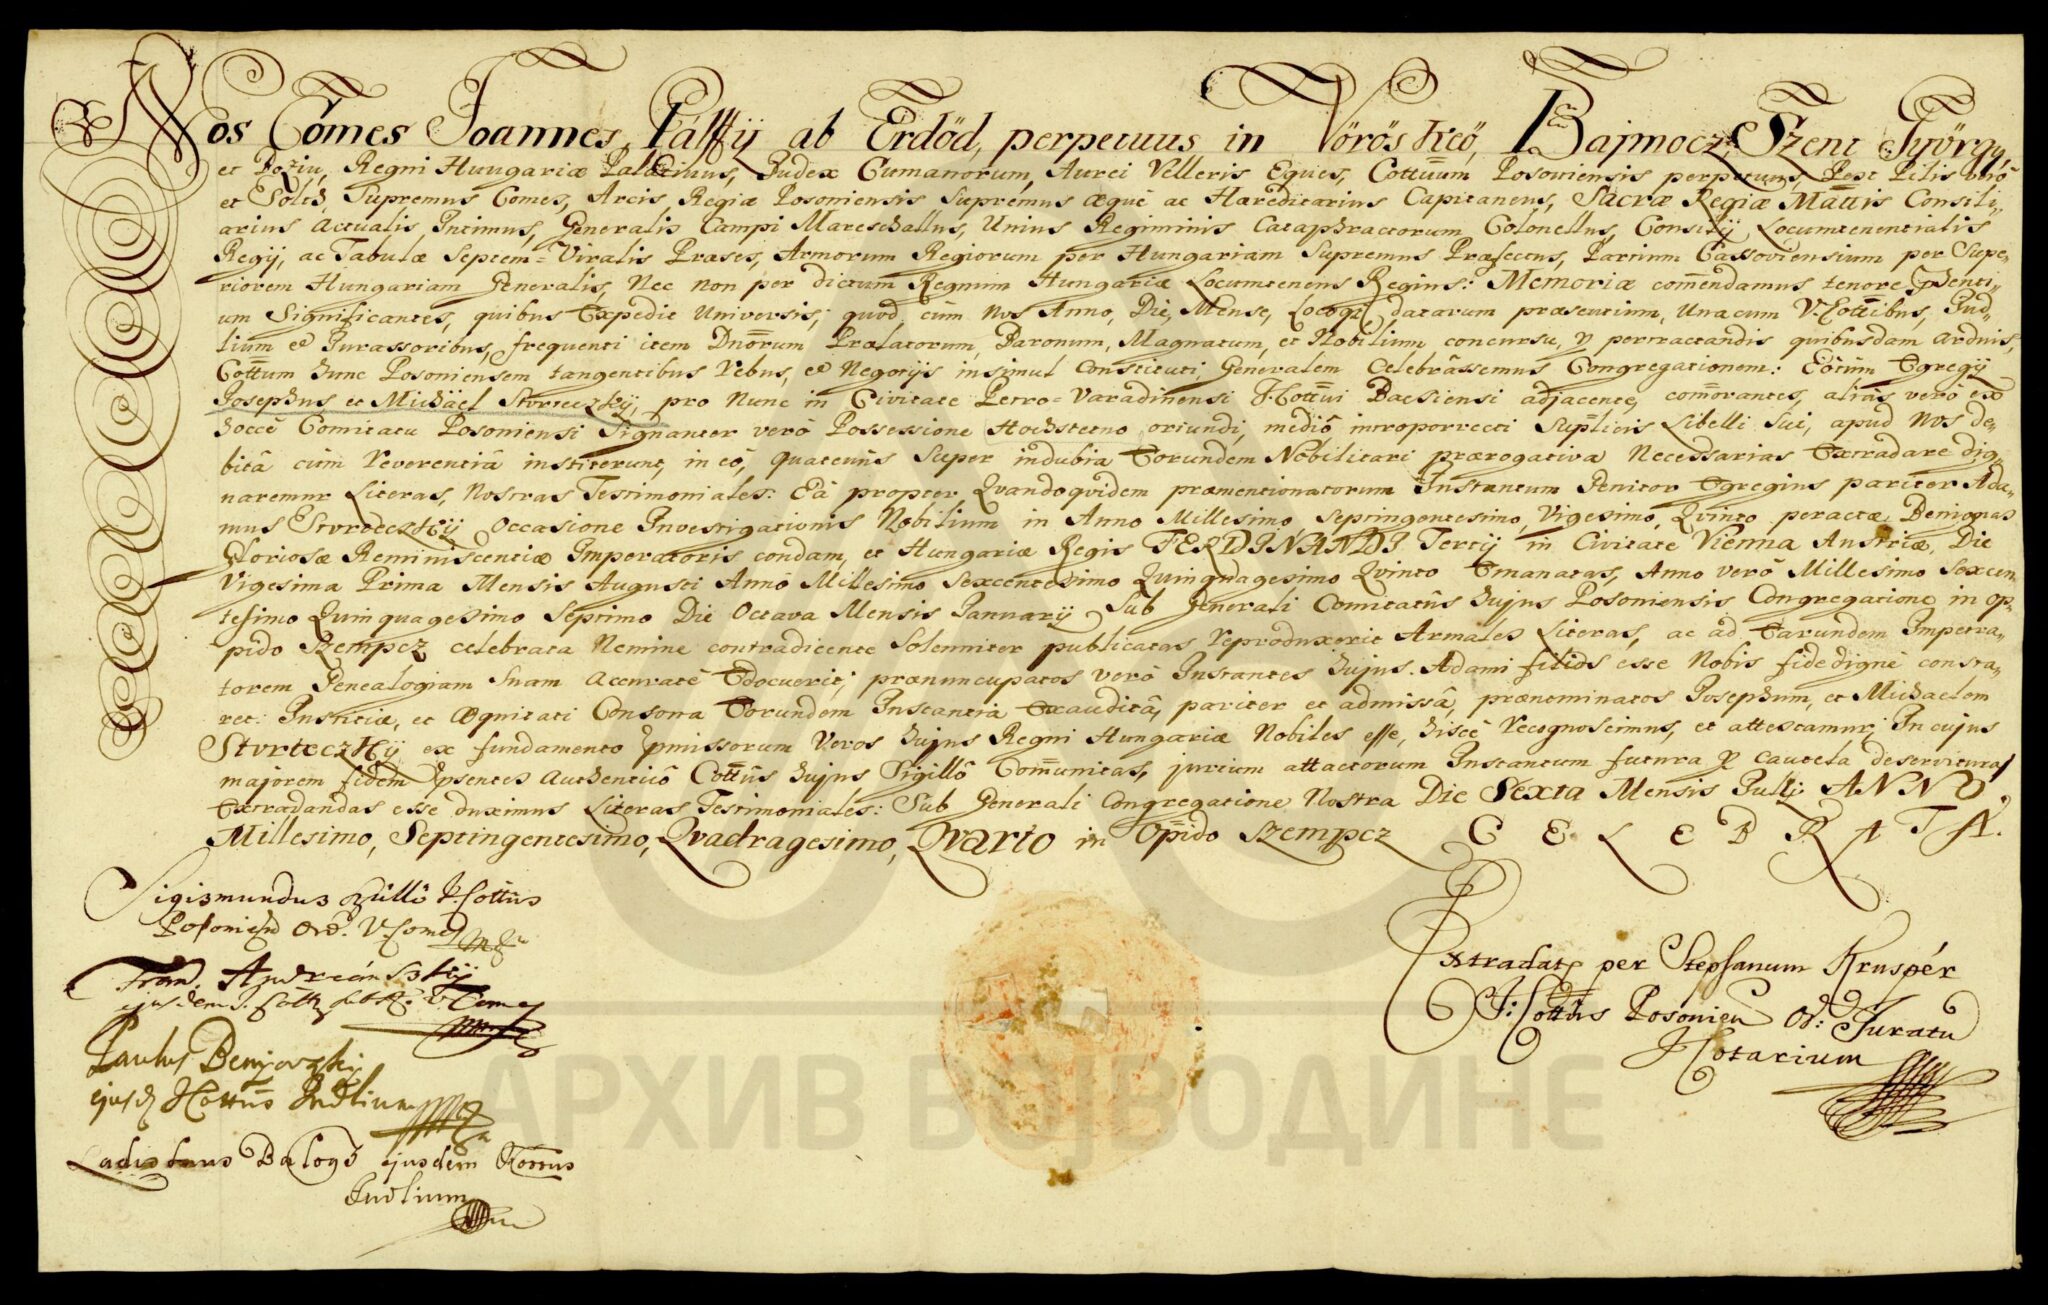 Nos Comes Joannes Pálffij ab Erdöd, perpetuus in Vörös Keö, Bajmocz, Szent György,
et Bozin, Regni Hungariæ Palatinus, Judex Cumanorum, Aurei Velleris Eques, Cottuum Posoniensis perpetuus, Pest Pilis verò
et Solth Supremus Comes, Arcis Regiæ Posoniensis Supremus æquè ac Hæreditarius Capitaneus, Sacræ Regiæ Mattis Consili-
arius Actualis Intimus, Generalis Campi Mareschallus, Unius Regiminis Cataphractorum Colonellus, Consilij Locumtenentialis
Regij, ac Tabulæ Septem-Viralis Præses, Armorum Regiorum per Hungariam Supremus Præfectus, Partium Cassoviensium per Supe-
riorem Hungariam Generalis, Nec non per dictum Regnum Hungariæ Locumtenens Regius: Memoriæ comendamus tenore pnti-
um Significantes, quibus Expedit Universis; quod cùm Nos Anno, Die, Mense, Locoque datarum præsentium, Unacum V. Cottibus, Jud-
lium et Jurassoribus, frequenti item Dnorum Prælatorum, Baronum, Magnatum, et Nobilium concursu, p pertractandis quibusdam arduis,
Cottum hunc Posoniensem tangentibus Rebus, et Negotijs insimul Constituti, Generalem Celebrâssemus Congregationem: Eotum Egregij
Josephus et Michäel Stvrteczkij, pro nunc in Civitate Petro-Varadinensi I. Cottui Bacsiensi adjacente, comorantes, aliàs verò ex
hoccè Comitatu Posoniensi Signanter verò Possessione Hochstetno oriundi, mediô introporrecti Suplicis Libelli Sui, apud Nos de-
bitâ cùm Reverentiâ institerunt, in eò, quatenus Super indubia Eorundem Nobilitari prærogativa Necessarias Extradare dig-
naremur Literas, Nostras Testimoniales: Eâ propter, Qvandoqvidem præmentionatorum Instantum Genitor Egregius pariter Ada-
mus Stvrteczkij Occasione Investigationis Nobilium in Anno Millesimo, Septingentesimo, Vigesimo, Qvinto peractæ, Benignas
Gloriosæ Reminiscentiæ Imperatoris condam, et Hungariæ Regis FERDINANDI Tertij in Civitate Vienna Austriæ, Die
Vigesima Prima Mensis Augusti Annô Millesimo Sexcentesimo Quinquagesimo Qvinto Emanatas, Anno verò Millesimo Sexcen-
tesimo Quinquagesimo Septimo Die Octava Mensis Januarij Sub Generali Comitatûs hujus Posoniensis Congregatione in Op-
pido Szempcz celebrata Nemine contradicente Solenniter publicatas Reproduxerit Armales Literas, ac ad Earundem Impetra-
torem Genealogiam Suam Accuratè Edocuerit; prænuncupatos verò Instantes hujus Adami filios esse Nobis fide dignè consta-
ret: Justitiæ, et Æquitati Consona Eorundem Instantia Exauditâ, pariter et admissâ, prænominatos Josephum, et Michaelem
Stvrteczkij ex fundamento pmissorum Veros hujus Regni Hungariæ Nobiles esse, hiscè Recognoscimus, et attestamur; In cujus
majorem fidem psentes Authenticô Cottûs hujus Sigillô Comunitas, jurium attactorum Instantum futura p cautela deservituras
Extradandas esse duximus Literas Testimoniales: Sub Generali Congregatione Nostra Die Sexta Mensis Julij ANNO
Millesimo, Septingentesimo, Qvadragesimo, Qvarto in Opido Szempcz CELEBRATA.
Sigismundus Züllö I. Cottûs
Posonien Ord. V. Comes
Franc. Andreánszkij
ejusdem I. Comes
Paulus Benyovszkij
ejusd I Cottûs Judlium
Ladislaus Balogh ejusdem I Cottus
Judlium
Extradat per Stephanum Kruspér
I: Cottûs Posonien Or: Juratu
Notarium
АРХИВ ВОЈВОДИНЕ